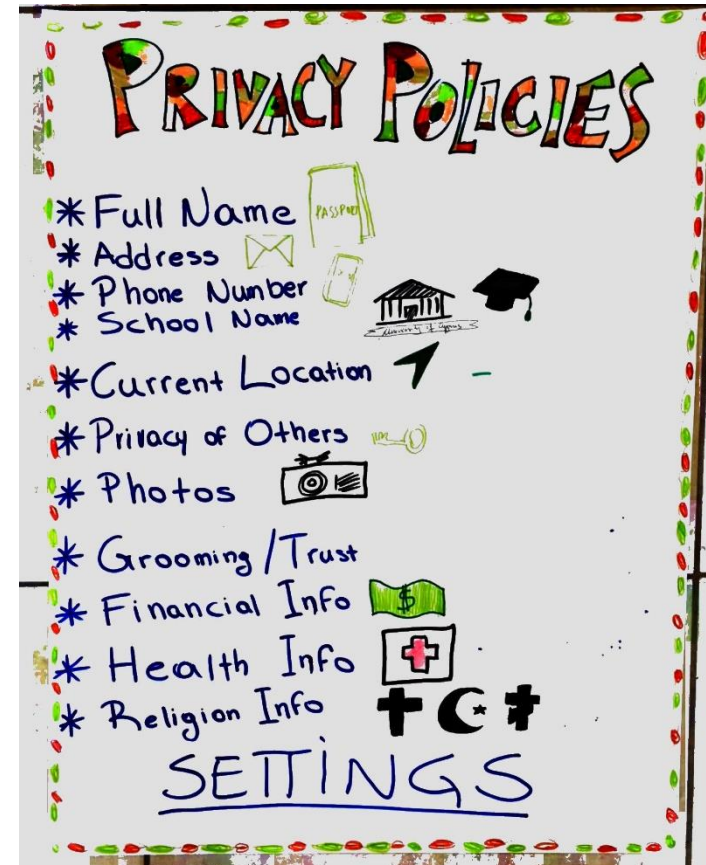 PRIVACY POLICIES
* Full Name
PASSPORT
* Address
* Phone Number
* School Name
University of Cyprus
* Current Location
* Privacy of Others
* Photos
* Grooming/Trust
* Financial Info
$
* Health Info
* Religion Info
SETTINGS